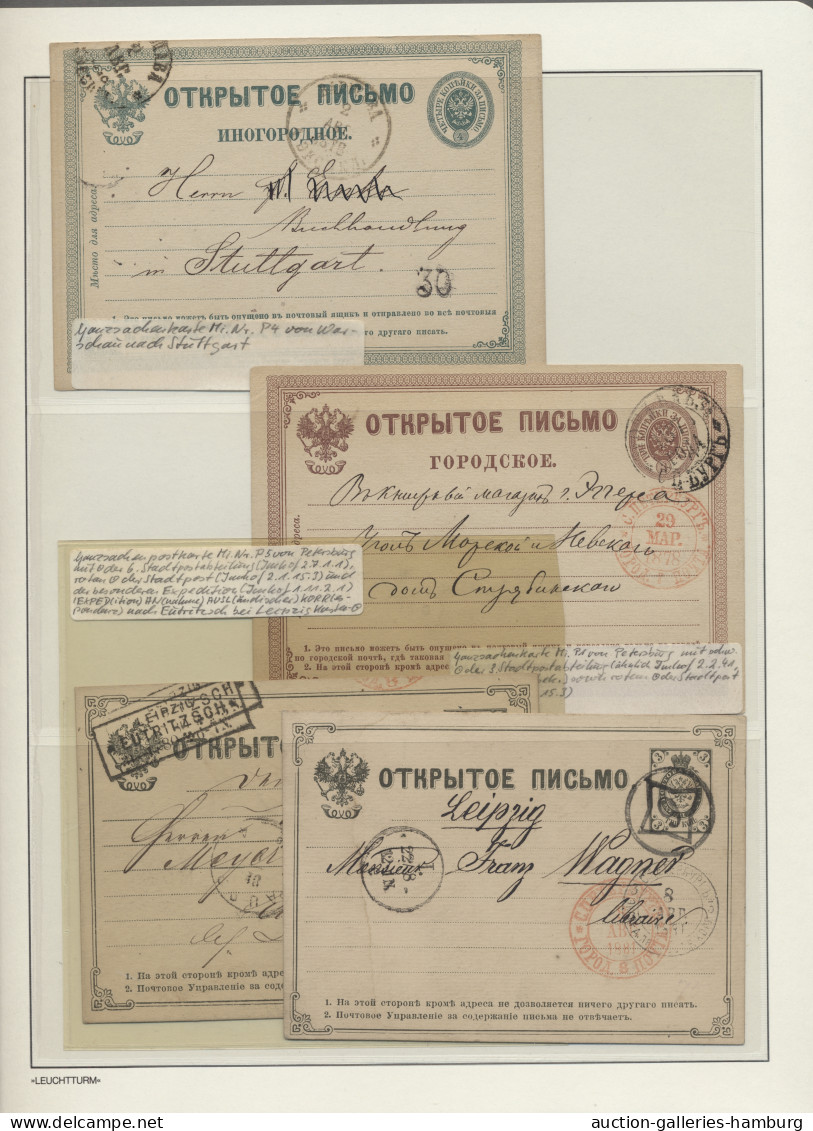 ОТКРЫТОЕ ПИСЬМО
ИНОГОРОДНОЕ.
ЧЕТЫРЕ КОПѢЙКИ ЗА ПИСЬМО
4
Мѣсто для адреса:
Herrn
Buchhandlung
in Stuttgart.
30
1. Это письмо можетъ быть опущено въ почтовый ящикъ и отправлено во всѣ почтовыя
другаго писать.
Ganzsachenkarte Mi. Nr. P4 von War-
schau nach Stuttgart
ОТКРЫТОЕ ПИСЬМО
ГОРОДСКОЕ.
Въ книжный магазинъ г. Эггерса
Уголъ Морской и Невскаго
домъ
29
МАР.
1878
1. Это письмо можетъ быть опущено въ
по городской почтѣ, гдѣ таковая
2. На этой сторонѣ кромѣ адреса
Ganzsachenpostkarte Mi. Nr. P5 von Petersburg
mit der 6. Stadtpostabteilung (Imhof 2.7.1.1),
roten der Stadtpost (Imhof 2.1.15.3) und
der besonderen Expedition (Imhof 1.11.2.1)
(EXPEDition) AN(nahme) AUSL(ändischer) KORR(es-
pondenz) nach Eutritzsch bei Leipzig
Ganzsachenkarte Mi. P1 von Petersburg mit schw.
der 3. Stadtpostabteilung (ähnlich Imhof 2.2.41,
sowie rotem der Stadtpost
15.3)
LEIPZIG
EUTRITZSCH
ОТКРЫТОЕ
Herren
Meyer
1. На этой сторонѣ кромѣ адреса
2. Почтовое Управленіе за содержаніе
ОТКРЫТОЕ ПИСЬМО
3 3
Leipzig
Monsieur Franz Wagner
libraire
8
ГОРОД. ПОЧТА
1. На этой сторонѣ кромѣ адреса не дозволяется ничего другаго писать.
2. Почтовое Управленіе за содержаніе письма не отвѣчаетъ.
»LEUCHTTURM«
auction-galleries-hamburg